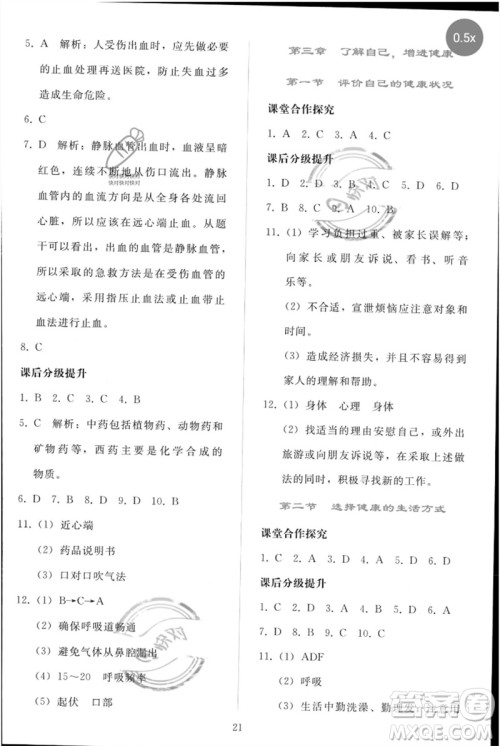 0.5x
5. A 解析：人受伤出血时，应用不同
的止血处理再送医院，防止失血过多
造成生命危险。
6. C
7. D 解析：静脉血管出血时，血液呈暗
红色，连续不断地从伤口流出。静脉
血管内的血流方向是从全身各处流回
心脏，所以应该在远心端止血。从本
题可以看出，出血的血管是静脉血管，
所以采取的急救方法是在受伤血管的
远心端，采用指压止血法或止血带止
血法进行止血。
8. C
课后分级提升
1. B 2. D 3. C 4. B
5. C 解析：中药包括植物药、动物药和
矿物药等，西药主要是化学合成的
药物。
6. D 7. D 8. B 9. D 10. D
11.（1）近心端
（2）药品说明书
（3）口对口吹气法
12.（1）B→C→A
（2）确保呼吸道畅通
（3）避免气体从鼻腔漏出
（4）15～20 呼吸频率
（5）起伏 口部
第三章 了解自己，增进健康
第一节 评价自己的健康状况
课堂合作探究
1. A 2. C 3. A 4. C
课后分级提升
1. D 2. C 3. D 4. B 5. C 6. C
7. B 8. C 9. A 10. B
11.（1）学习负担过重、被家长误解等；
向家长或朋友诉说、看书、听音
乐等。
（2）不合适，宣泄烦恼应注意对象和
时间。
（3）造成经济损失，并可能得不到
家人的理解和帮助。
12.（1）身体 心理 身体
（2）找适当的理由安慰自己，或者出去
旅游或与朋友诉说等；在采取上述做
法的同时，积极寻找新的工作。
第二节 选择健康的生活方式
课堂合作探究
1. C 2. D 3. A 4. D
课后分级提升
1. C 2. A 3. C 4. B 5. C 6. D
7. D 8. D 9. C 10. B
11.（1）ADF
（2）呼吸
（3）生活中勤洗澡、勤理发
21